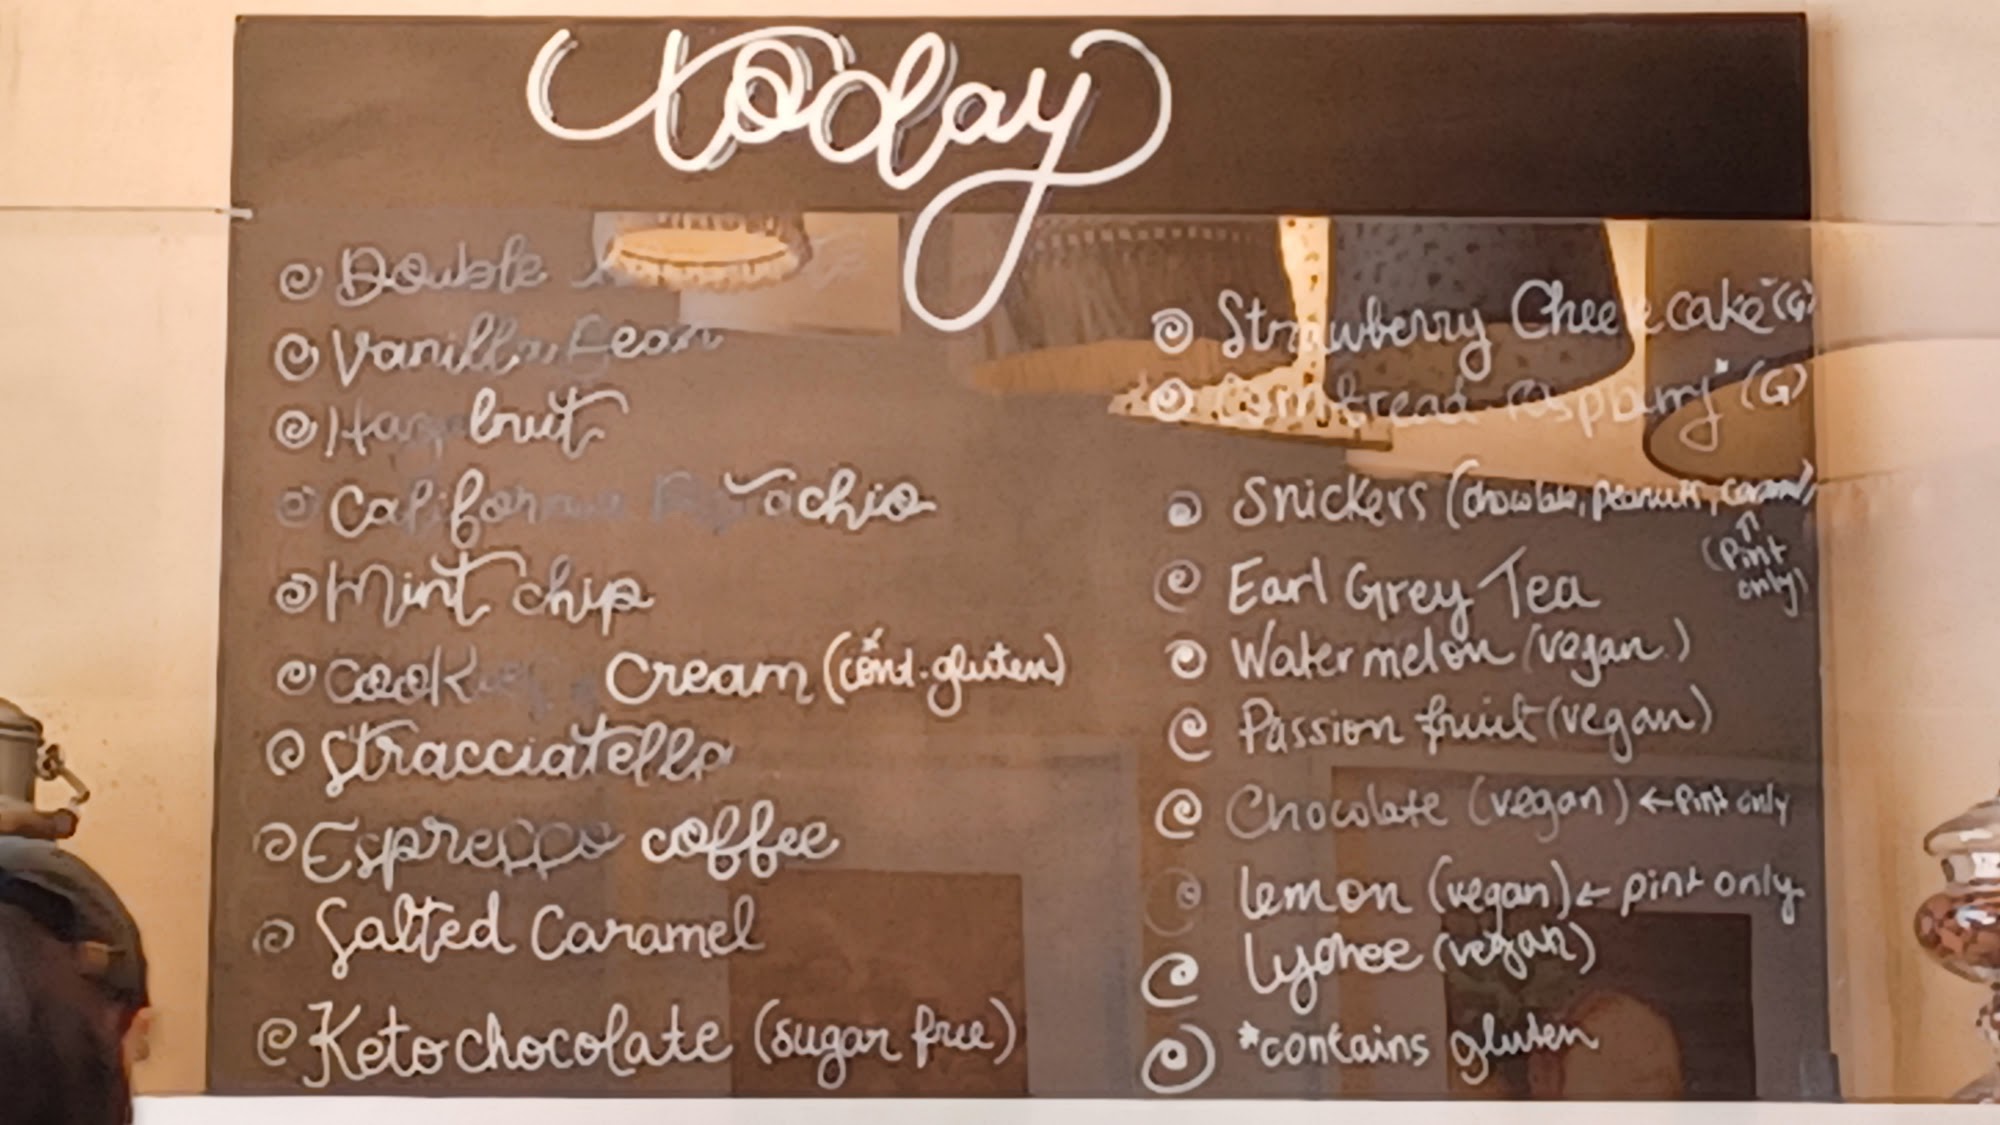 today
Double
Vanilla Bean
Hazelnut
California Pistachio
Mint chip
Cookies Cream (*cont. gluten)
Stracciatella
Espresso coffee
Salted Caramel
Keto chocolate (sugar free)
Strawberry Cheesecake* (G)
Cornbread raspberry* (G)
Snickers (chocolate, peanuts, caramel)
(Pint
only)
Earl Grey Tea
Watermelon (vegan)
Passion fruit (vegan)
Chocolate (vegan) ← Pint only
lemon (vegan) ← pint only
lychee (vegan)
*contains gluten